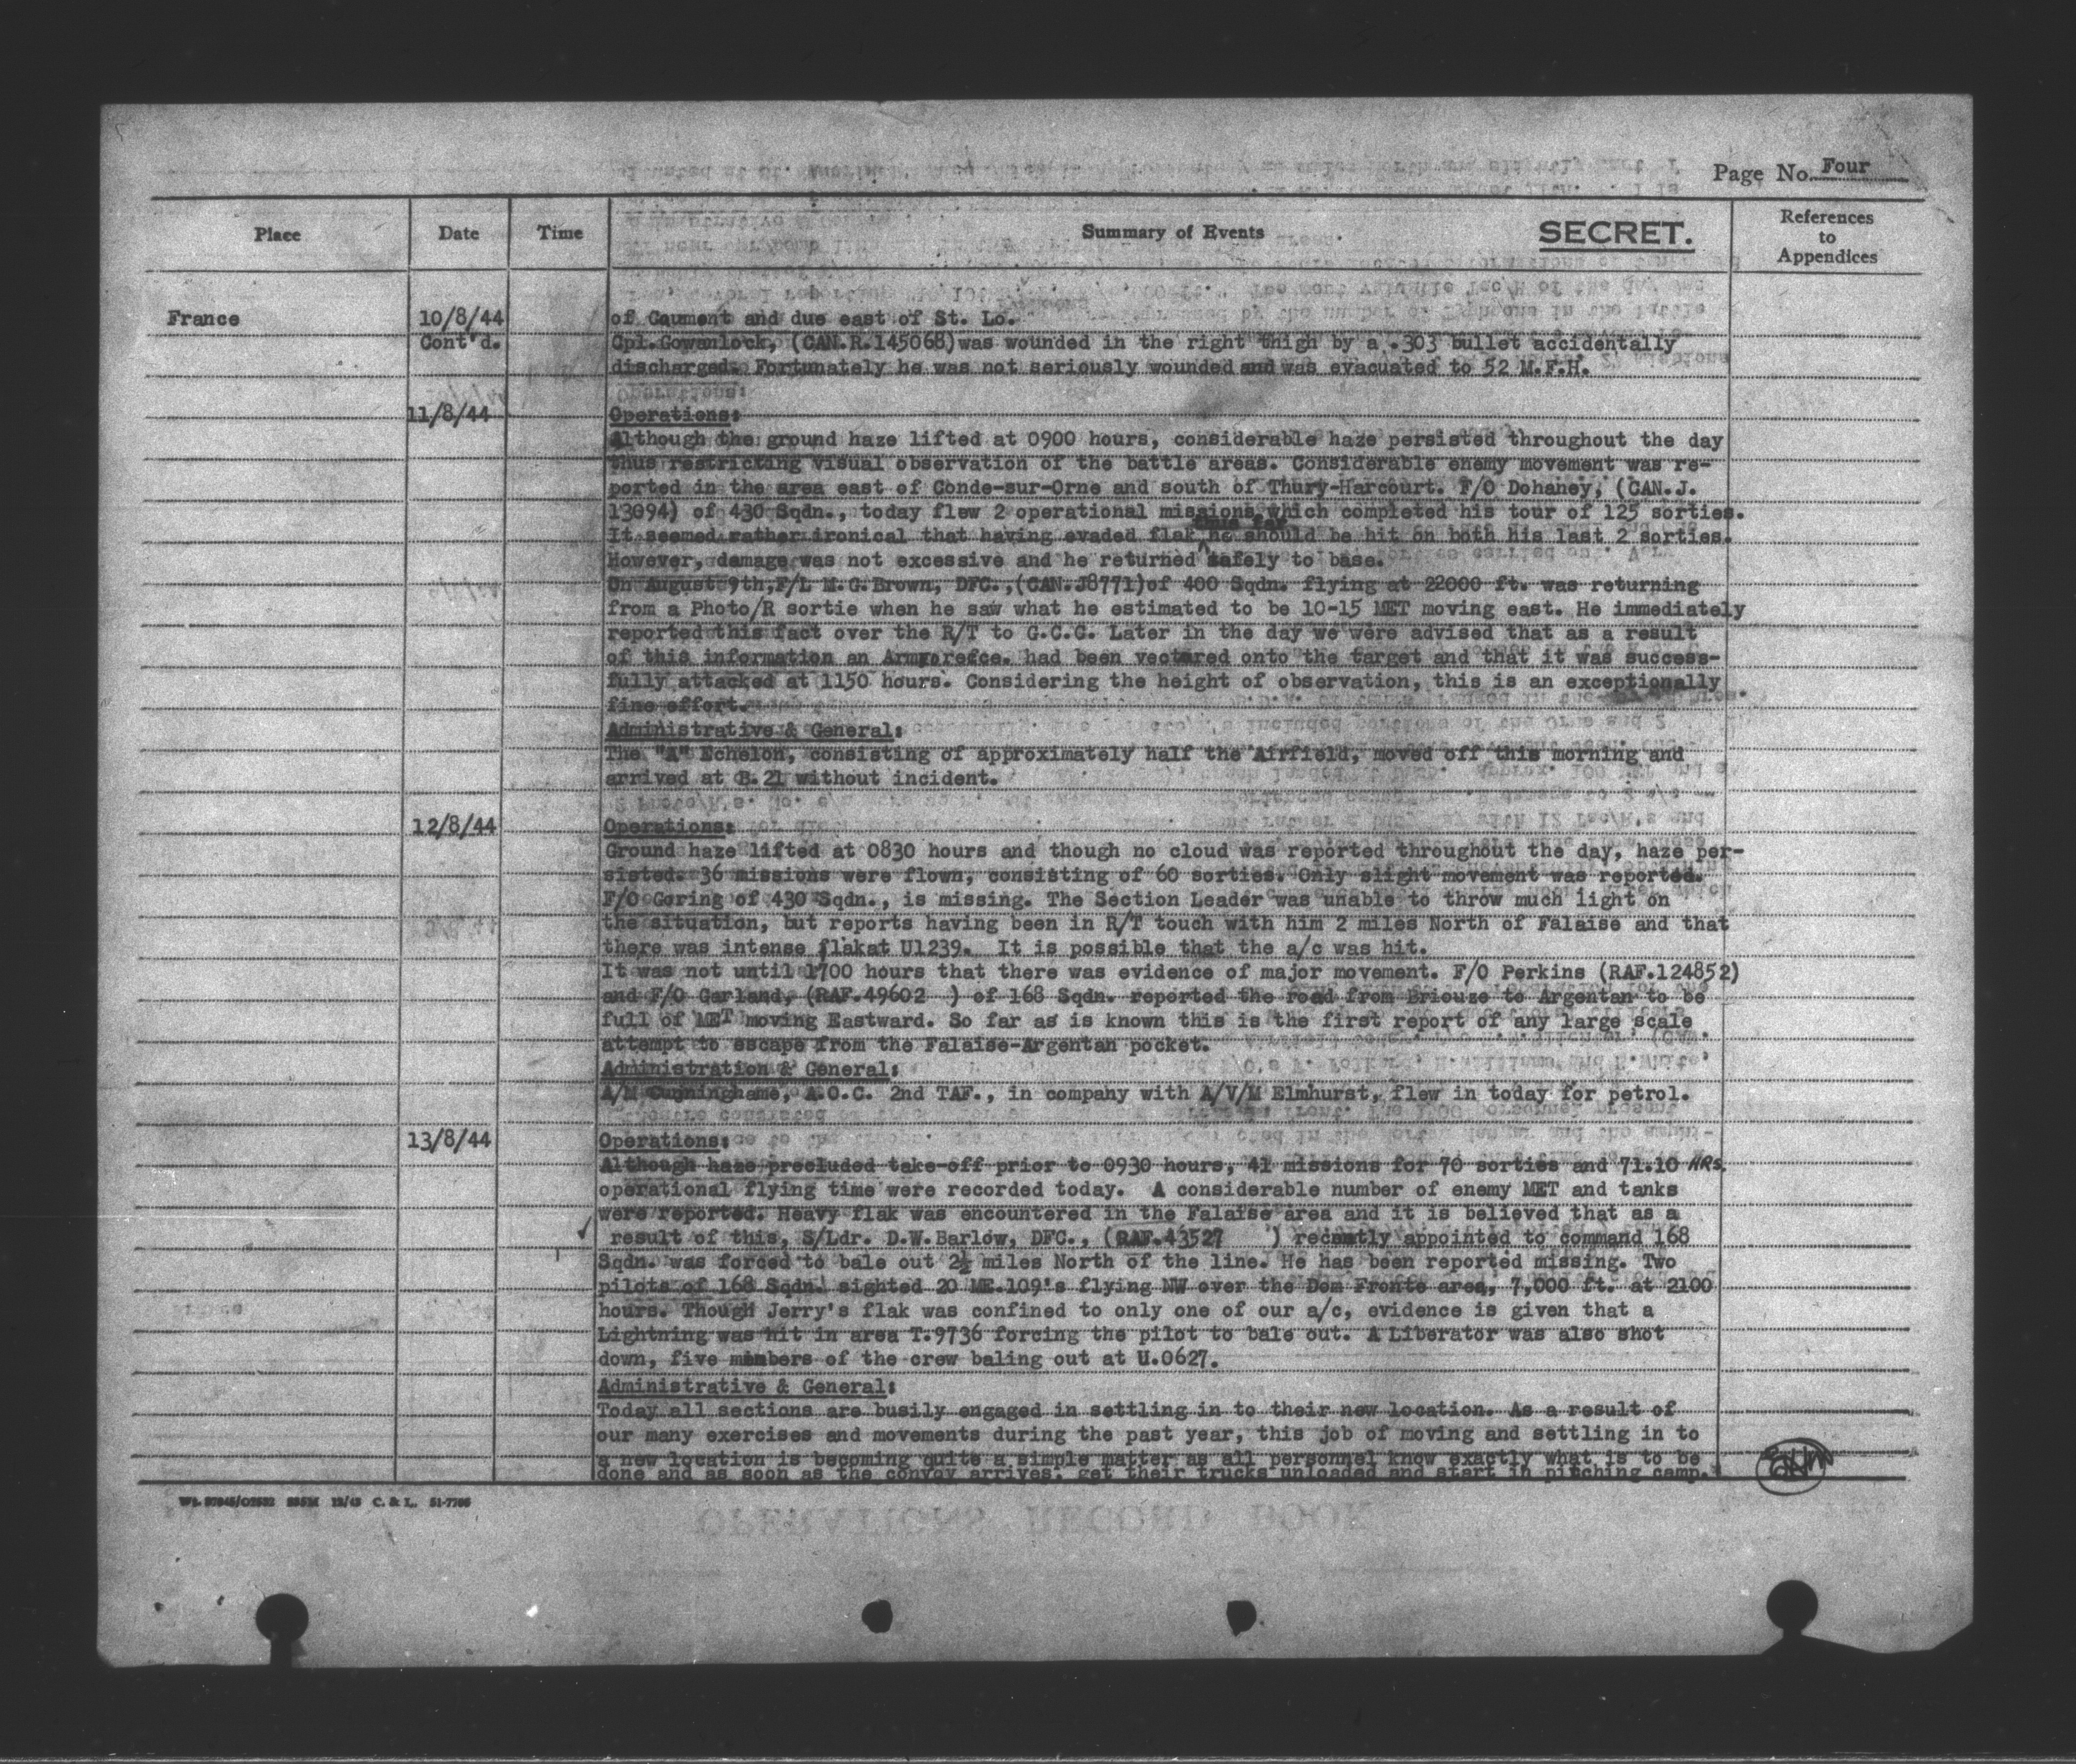 Page No. Four
Place Date Time Summary of Events SECRET. References to Appendices
France 10/8/44 of Caumont and due east of St. Lo.
Cont'd. Cpl.Gowanlock, (CAN.R.145068)was wounded in the right thigh by a .303 bullet accidentally
discharged. Fortunately he was not seriously wounded and was evacuated to 52 M.F.H.
11/8/44 Operations:
Although the ground haze lifted at 0900 hours, considerable haze persisted throughout the day
thus restricting visual observation of the battle areas. Considerable enemy movement was re-
ported in the area east of Conde-sur-Orne and south of Thury-Harcourt. F/O Dohaney, (CAN.J.
13094) of 430 Sqdn., today flew 2 operational missions which completed his tour of 125 sorties.
thus far
It seemed rather ironical that having evaded flak he should be hit on both his last 2 sorties.
However, damage was not excessive and he returned safely to base.
On August 9th,F/L M.G.Brown, DFC.,(CAN.J8771)of 400 Sqdn. flying at 22000 ft. was returning
from a Photo/R sortie when he saw what he estimated to be 10-15 MET moving east. He immediately
reported this fact over the R/T to G.C.C. Later in the day we were advised that as a result
of this information an had been vectored onto the target and that it was success-
fully attacked at 1150 hours. Considering the height of observation, this is an exceptionally
fine effort.
Administrative & General:
The "A" Echelon, consisting of approximately half the Airfield, moved off this morning and
arrived at B.21 without incident.
12/8/44 Operations:
Ground haze lifted at 0830 hours and though no cloud was reported throughout the day, haze per-
sisted. 36 missions were flown, consisting of 60 sorties. Only slight movement was reported.
F/O Goring of 430 Sqdn., is missing. The Section Leader was unable to throw much light on
the situation, but reports having been in R/T touch with him 2 miles North of Falaise and that
there was intense flakat U1239. It is possible that the a/c was hit.
It was not until 1700 hours that there was evidence of major movement. F/O Perkins (RAF.124852)
and F/O Garland, (RAF.49602 ) of 168 Sqdn. reported the road from Briouze to Argentan to be
full of MET moving Eastward. So far as is known this is the first report of any large scale
attempt to escape from the Falaise-Argentan pocket.
Administration & General:
A/M Cunninghame, A.O.C. 2nd TAF., in company with A/V/M Elmhurst, flew in today for petrol.
13/8/44 Operations:
Although haze precluded take-off prior to 0930 hours, 41 missions for 70 sorties and 71.10 HRS.
operational flying time were recorded today. A considerable number of enemy MET and tanks
were reported. Heavy flak was encountered in the Falaise area and it is believed that as a
result of this, S/Ldr. D.W.Barlow, DFC., (RAF.43527 ) recently appointed to command 168
Sqdn. was forced to bale out 2½ miles North of the line. He has been reported missing. Two
pilots of 168 Sqdn. sighted 20 ME.109's flying NW over the Dom Fronte area, 7,000 ft. at 2100
hours. Though Jerry's flak was confined to only one of our a/c, evidence is given that a
Lightning was hit in area T.9736 forcing the pilot to bale out. A Liberator was also shot
down, five members of the crew baling out at U.0627.
Administrative & General:
Today all sections are busily engaged in settling in to their new location. As a result of
our many exercises and movements during the past year, this job of moving and settling in to
a new location is becoming quite a simple matter as all personnel know exactly what is to be
done and as soon as the convoy arrives, get their trucks unloaded and start in pitching camp.
C. & L. 51-7706
OPERATIONS RECORD BOOK